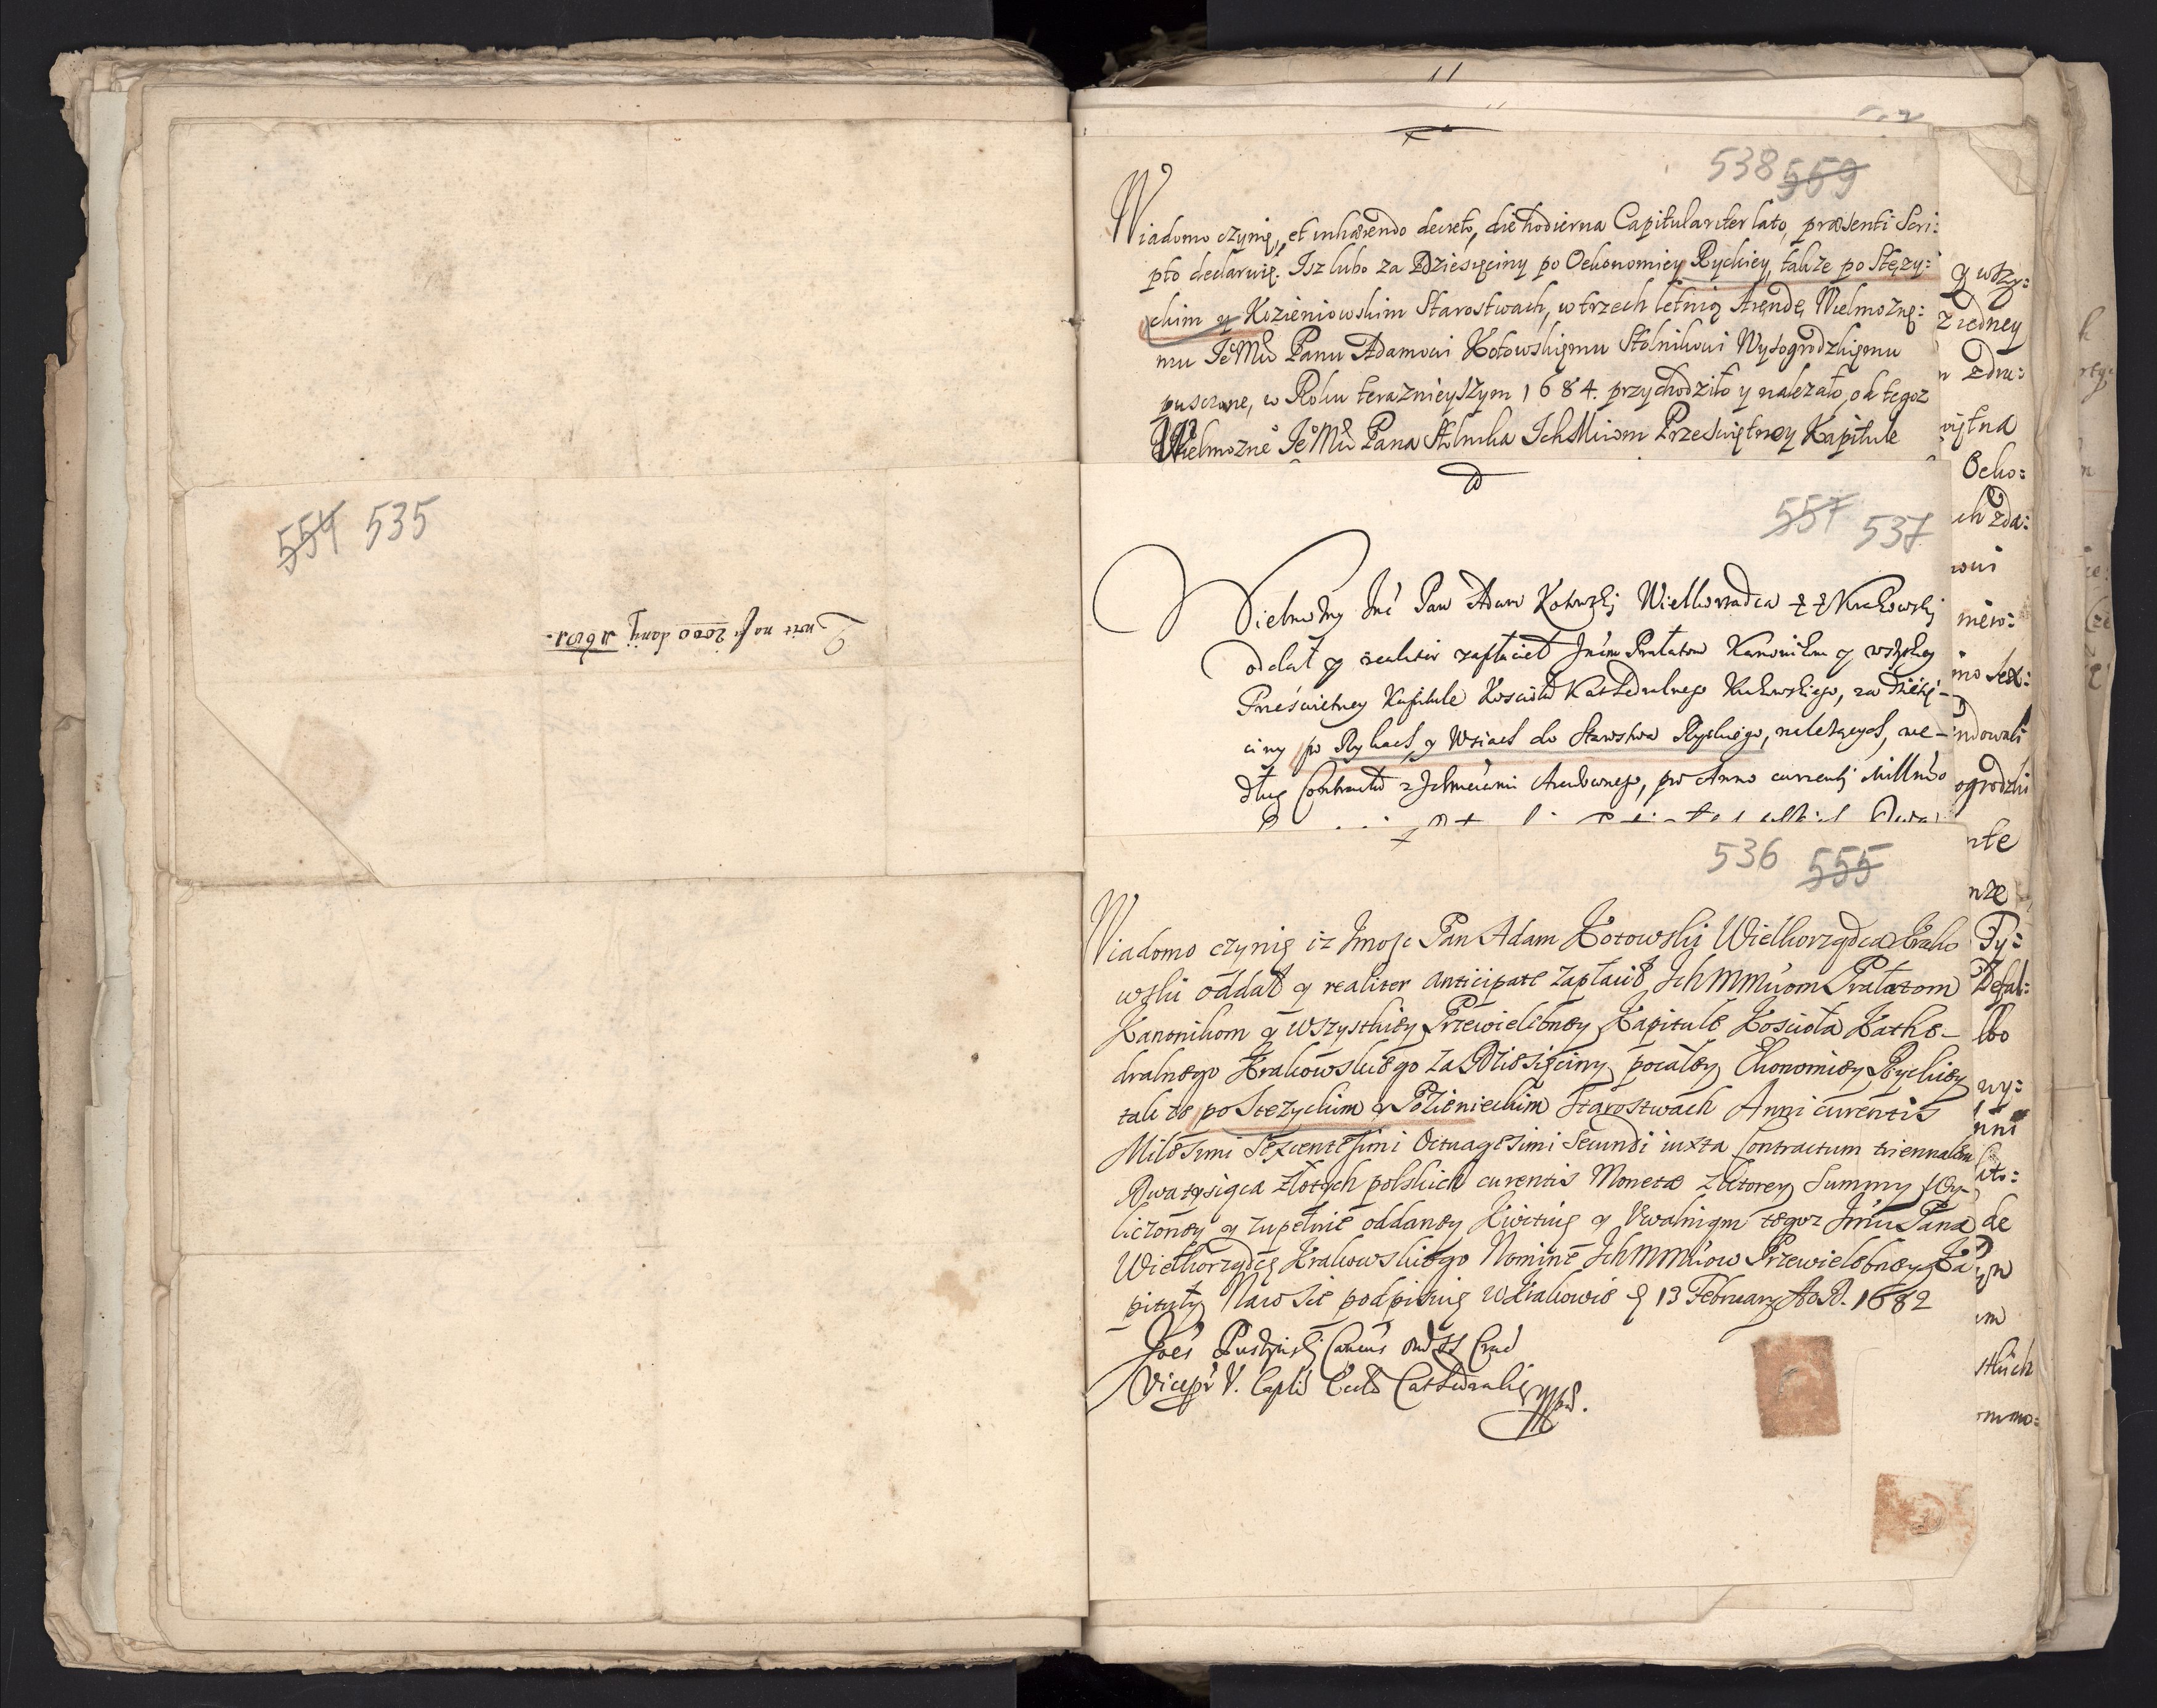 554 535
Kwit na fl 2000 dany 1681.
11
538 559
Wiadomo czynię, et inhærendo decreto, die hodierna Capitulariter lato, præsenti Scri:
pto declaruię. Isz lubo za Dziesięciny po Oekonomiey Ryckiey, także po Stęzy:
ckim y Kozieniowskim Starostwach, w trzech letnią Arendę Wielmoznę:
mu Je°Mći Panu Adamowi Kotowskięmu Stolnikowi Wyszogrodzkięmu
pusczone, w Roku teraznieyszym 1684. przychodziło y nalezało, od tegoz
Wielmozne° Je°Mći Pana Stolnika IchMciom Przeświętney Kapitule
557 537
Wielmozny Jmć Pan Adam Kotowskj Wielkorządca Krakowskj
oddał y realiter zapłacieł Jmćm Prałatom Kanonikom y wszytkey
Prześwietney Kapitule Kosciołá Kathedralnego Krakowskiego, za dzieśię-
ciny po Rykach, y Wsiach do Starostwa Ryckiego, należących, we-
dług Contractu z Jchmciami Arendownego, pro Anno currentj Millmo
536 555
Wiadomo czynię iz Jmość Pan Adam Kotowski Wielkorządca Krako
wski oddał y realiter anticipate zapłacił Ich MMciom Prałatom
Kanonikom y wszystkiey Przewielebney Kapitule Kosciołá Kathe-
dralnego Krakowskiego za Dziesięciny po całey Ekonomiey Ryckiey
tak ze po Stezyckim y Kozienieckim Starostwach Anni curentis
Milesimi Sexcentesimi Octuagesimi Secundi iuxta Contractum triennalem
Dwa tysiąca złotych polskich curentis Monetæ z ktorey Summy Wy-
liczoney y zupełnie oddaney Kwituię y Vwalniam tegoz Jmći Pana
Wielkorządcę Krakowskiego Nomine Ich MMciow Przewielebney Ka
pituły Na co się podpisuię w Krakowie d 13 February A° D. 1682
V. Capli Eccle Cathedralis mpp.
y wszy:
z iedney
z dru:
więtna
Oeko:
ch zda:
wi
niew:
mo sex:
ndowali
ogrodzki
nte
nze
Ty:
Defal:
lbo
wy:
nni
kto:
de
em
skich
ommo: